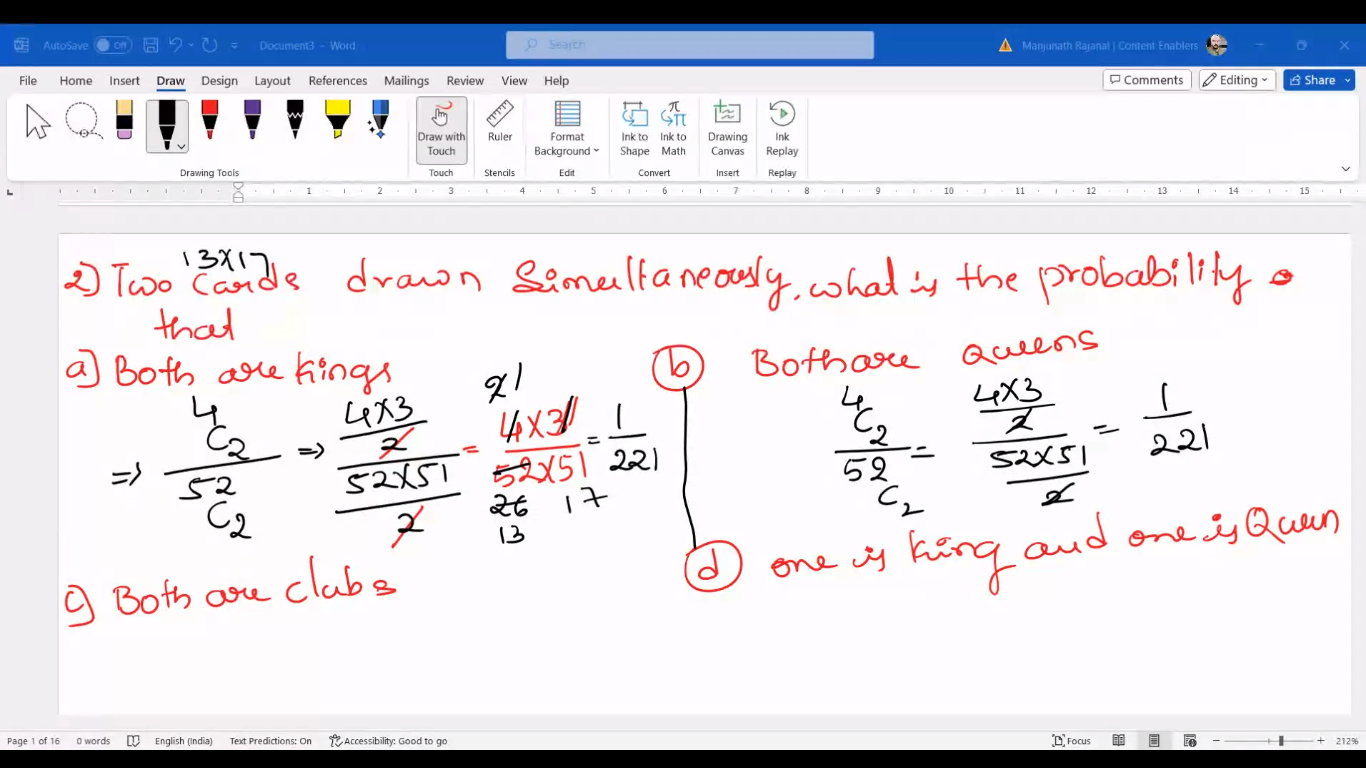 AutoSave Off Document3 - Word Search Manjunath Rajanal | Content Enablers
File Home Insert Draw Design Layout References Mailings Review View Help Comments Editing Share
Draw with Touch Ruler Format Background Ink to Shape Ink to Math Drawing Canvas Ink Replay
Drawing Tools Touch Stencils Edit Convert Insert Replay
1 2 3 4 5 6 7 8 9 10 11 12 13 14 15
13×17
2) Two cards drawn Simultaneously, what is the probability
that
a) Both are kings
⇒ 4C2 / 52C2 ⇒ (4×3/2) / (52×51/2) = 4×3 / 52×51 = 1/221
2 1
26 17
13
b Both are Queens
4C2 / 52C2 = (4×3/2) / (52×51/2) = 1/221
c) Both are clubs
d one is king and one is Queen
Page 1 of 16 0 words English (India) Text Predictions: On Accessibility: Good to go Focus 212%